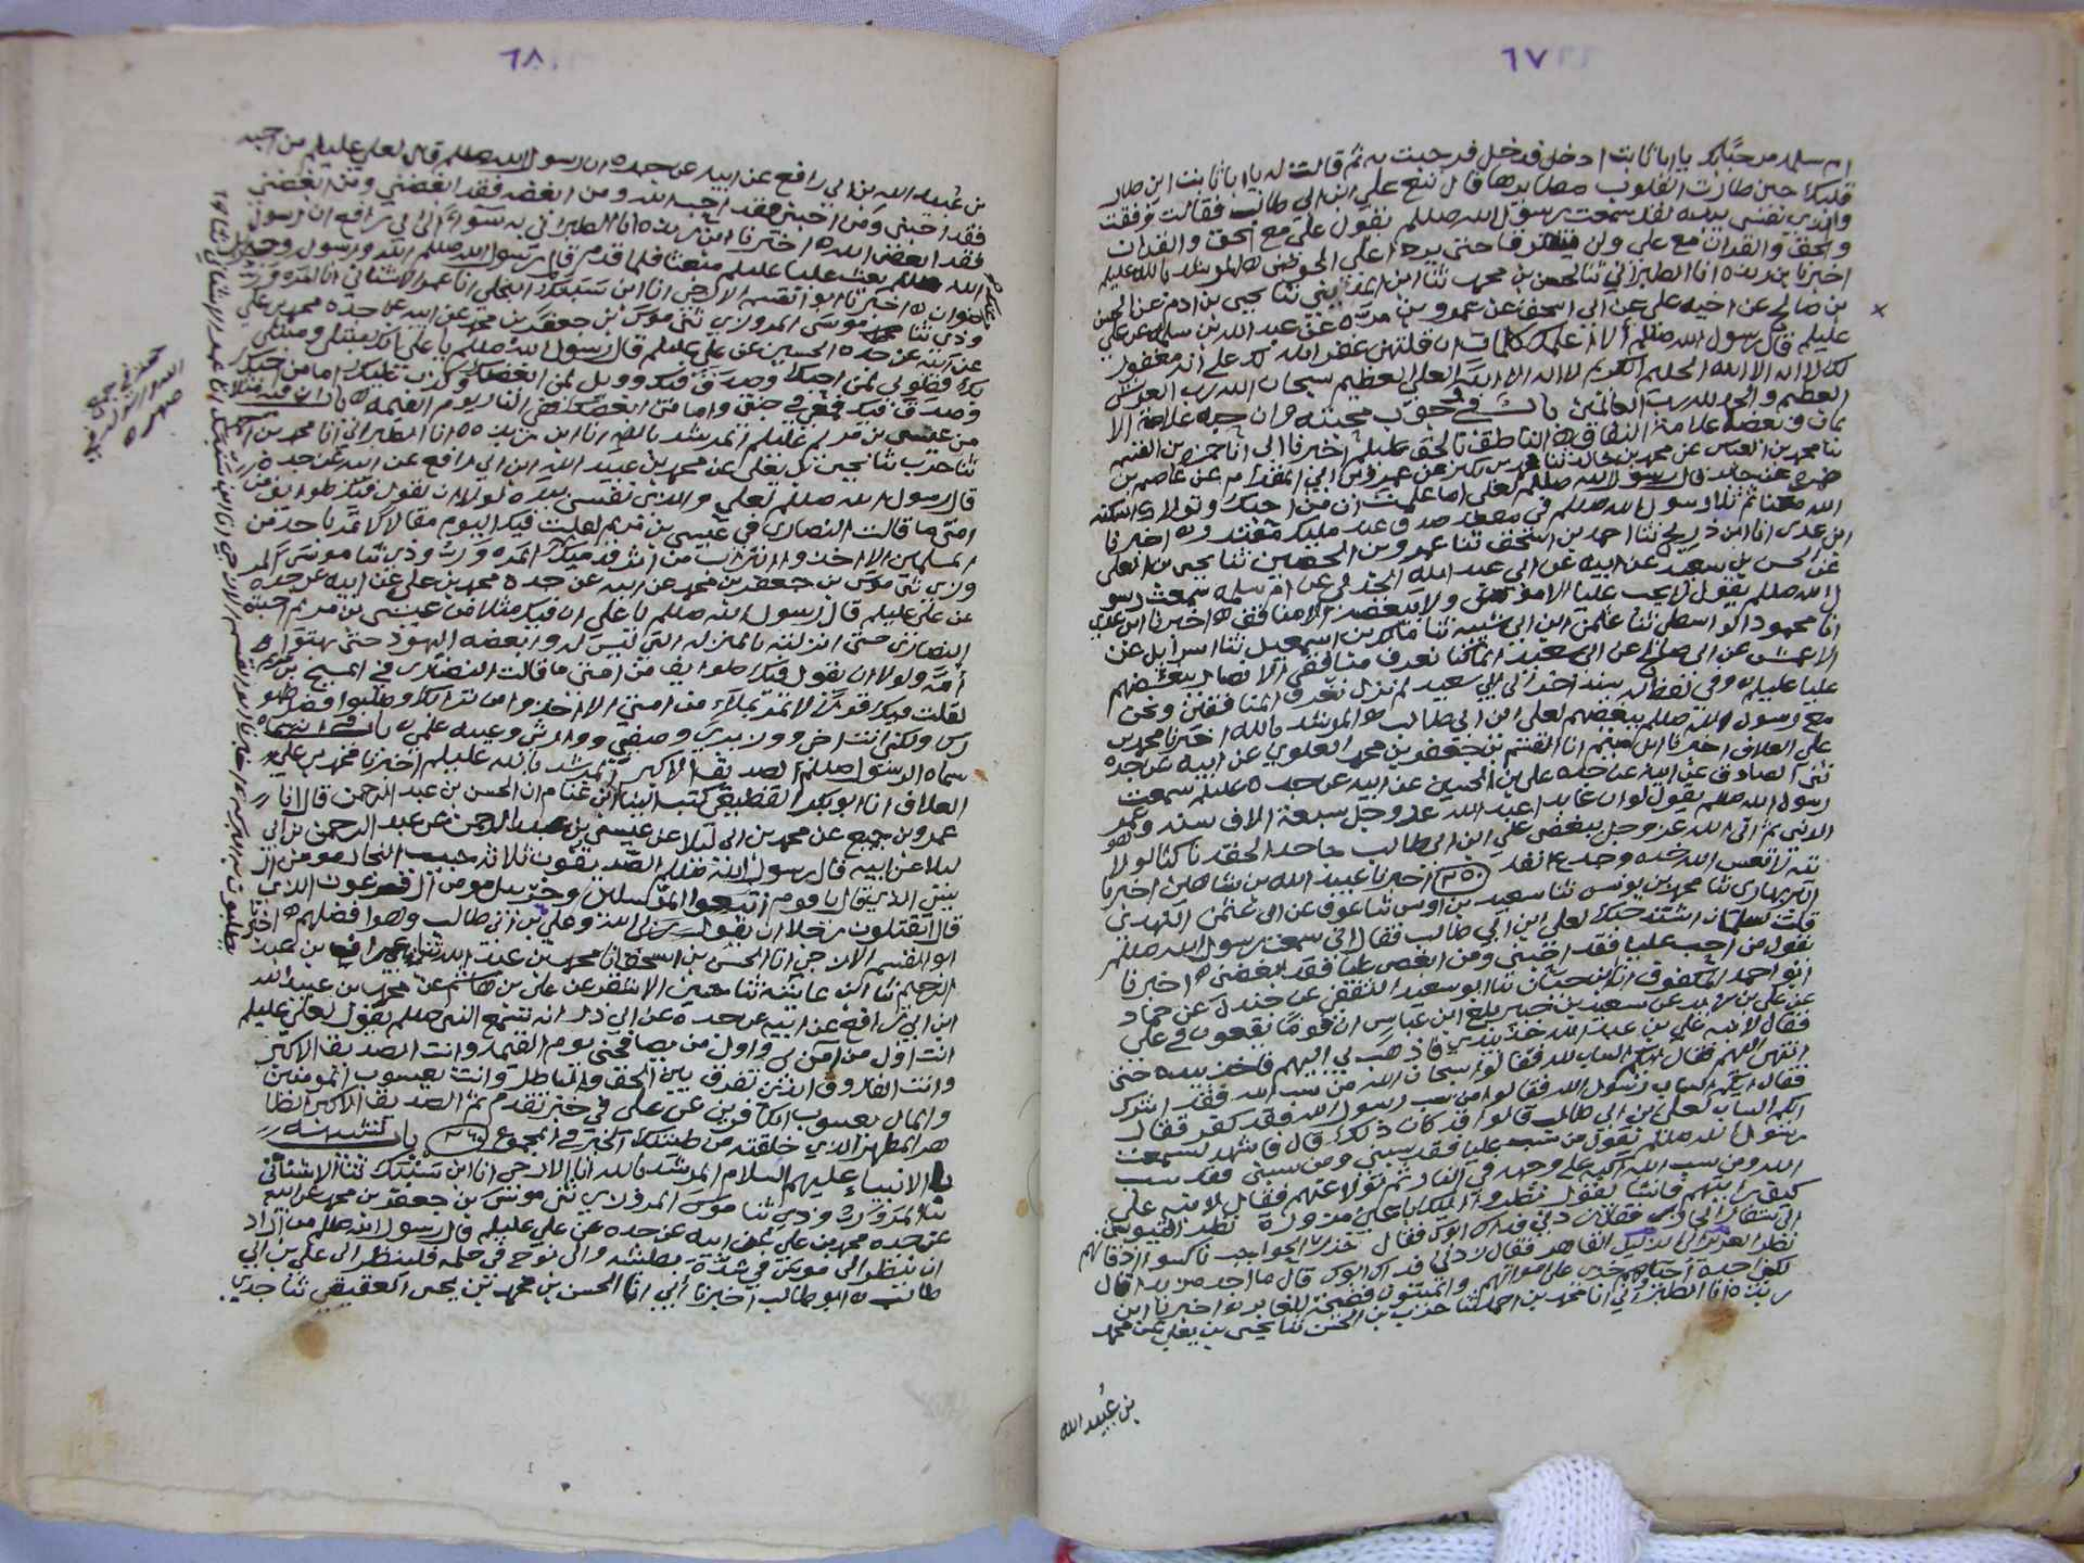 ٦٧
ام سلمة مرحبا بك يا ابا ثابت ادخل فدخل فرحبت به ثم قالت له يا ابا ثابت اين طار
قلبك حين طارت القلوب مطايرها قال تبع علي ابن ابي طالب فقالت وفقت
والذي نفسي بيده لقد سمعت رسول الله صللم يقول علي مع الحق والقران
والحق والقران مع علي ولن يفترقا حتى يردا علي الحوض المرشد بالله عليلم
اخبرنا ابن ريذه انا الطبراني ثنا الحسن بن محمد ثنا يحيى بن ادم عن الحسن
بن صالح عن اخيه علي عن ابي اسحق عن عمرو بن مرة عن عبد الله بن سلمة عن علي
عليلم قال رسول الله صللم الا اعلمك كلمات ان قلتهن غفر الله لك على انه مغفور
لك لا اله الا الله الحليم الكريم لا اله الا الله العلي العظيم سبحان الله رب العرش
العظيم والحمد لله رب العالمين باب في وجوب محبته وان حبه علامة الا
يمان وبغضه علامة النفاق الناطق بالحق عليلم اخبرنا ابي انا حمزة بن القسم
ثنا محمد بن العباس عن محمد بن خالد ثنا عن عمرو بن ابي المقدام عن عاصم بن
عن جابر قال رسول الله صللم لعلي اما علمت ان من احبك وتولاك اسكنه
الله معنا ثم تلا رسول الله صللم في مقعد صدق عند مليك مقتدر اخبرنا
ابن عدي انا ابن ذريح ثنا احمد بن اسحق ثنا عمرو بن الحصين ثنا يحيى بن العلى
عن الحسن بن سعيد عن ابيه عن ابي عبد الله الجدلي عن ام سلمة سمعت رسو
ل الله صللم يقول لا يحب عليا الا مومن ولا يبغضه الا منافق اخبرنا ابن عدي
انا محمود الواسطي ثنا عثمن ابن ابي شيبة ثنا ملك بن اسمعيل ثنا اسرايل عن
الاعمش عن ابي صالح عن ابي سعيد انما كنا نعرف منافقي الانصار ببغضهم
عليا عليلم وفي لفظ له بسند اخر الى ابي سعيد لم نزل نعرف المنافقين ونحن
مع رسول الله صللم ببغضهم لعلي ابن ابي طالب المرشد بالله اخبرنا محمد بن
علي العلاف اخبرنا ابن ميثم انا القسم بن جعفر بن محمد العلوي عن ابيه عن جده
ثني الصادق عن ابيه عن جده علي بن الحسين عن ابيه عن جده عليلم سمعت
رسول الله صللم يقول لو ان عابدا عبد الله عز وجل سبعة الاف سنة وهو عمر
الدنيا ثم اتى الله عز وجل ببغض علي ابن ابي طالب جاحدا لحقه ناكثا لولا
يته لاتعس الله خده وجدع انفه ٣٥٠ اخبرنا عبيد الله بن شاهين اخبرنا
البربهاري ثنا محمد بن يونس ثنا سعيد بن اوس ثنا عوف عن ابي عثمن النهدي
قلت لسلمان اشتد حبك لعلي ابن ابي طالب فقال اني سمعت رسول الله صللم
يقول من احب عليا فقد احبني ومن ابغض عليا فقد ابغضني اخبرنا
ابو احمد المكفوف انا ابن حيان ثنا ابو سعيد الثقفي عن جندل عن حماد
عن علي بن زيد عن سعيد بن جبير بلغ ابن عباس ان قوما يقعون في علي
فقال لابنه علي بن عبد الله خذ بيدي فاذهب بي اليهم فاخذ بيده حتى
انتهى اليهم فقال ايكم الساب لله فقالوا سبحان الله من سب الله فقد اشرك
فقال ايكم الساب رسول الله فقالوا من سب رسول الله فقد كفر فقال
ايكم الساب لعلي بن ابي طالب قالوا قد كان ذلك قال فاشهد لسمعت
رسول الله صللم يقول من سب عليا فقد سبني ومن سبني فقد سب
الله ومن سب الله اكبه على وجهه في النار ثم تولا عنهم فقال لابنه علي
كيف رايتهم فانشا يقول نظروا اليك باعين مزورة نظر التيوس
الى شفار الجازر فقال زدني فداك ابوك فقال خزر الحواجب ناكسوا اذقانهم
نظر الذليل الى العزيز القاهر فقال زدني فداك ابوك قال ما اجد مزيدا قال
لكني اجد احياوهم خزي على امواتهم والميتون فضيحة للغابر اخبرنا ابن
ريذه انا الطبراني انا محمد بن احمد ثنا حرب بن الحسن ثنا يحيى بن يعلى عن محمد
بن عبيد الله
٦٨
بن عبيد الله بن ابي رافع عن ابيه عن جده ان رسول الله صللم قال لعلي عليلم من احبه
فقد احبني ومن احبني فقد احب الله ومن ابغضه فقد ابغضني ومن ابغضني
فقد ابغض الله اخبرنا ابن ريذه انا الطبراني به سواء الى ابي رافع ان رسول
الله صللم بعث عليا عليلم مبعثا فلما قدم قال رسول الله صللم الله ورسوله وجبريل
عنك راضوان اخبرنا ابو القسم الازجي انا ابن سنبك البجلي انا عمر الاشناني انا المروزي
ودي ثنا موسى المروزي ثني موسى بن جعفر بن محمد عن ابيه عن جده محمد بن علي
عن ابيه عن جده الحسين عن علي عليلم قال رسول الله صللم يا علي انك مبتلى ومبتلى
بك فطوبى لمن احبك وصدق فيك وويل لمن ابغضك وكذب عليك اما من احبك
وصدق فيك فمعي في جنتي واما من ابغضك ففي النار يوم القيمة باب ان فيه مثلا
من عيسى بن مريم عليلم المرشد بالله انا ابن ريذه انا الطبراني انا محمد بن احمد
ثنا حرب ثنا يحيى بن يعلى عن محمد بن عبيد الله ابن ابي رافع عن ابيه عن جده
قال رسول الله صللم لعلي والذي نفسي بيده لولا ان يقول فيك طوايف من
امتي ما قالت النصارى في عيسى بن مريم لقلت فيك اليوم مقالا لا تمر باحد من
المسلمين الا اخذوا التراب من اثر قدميك المروروذي ثنا موسى المر
وزي ثني موسى بن جعفر بن محمد عن ابيه عن جده محمد بن علي عن ابيه عن جده
عن علي عليلم قال رسول الله صللم يا علي ان فيك مثلا من عيسى بن مريم احبته
النصارى حتى انزلته بالمنزلة التي ليس له وابغضه اليهود حتى بهتوا
امه ولولا ان يقول فيك طوايف من امتي ما قالت النصارى في المسيح بن مريم
لقلت فيك قولا لا تمر بملاء من امتي الا اخذوا من ترابك وطلبوا فضل طهو
رك ولكن انت اخي ووزيري وصفيي ووارثي وعيبة علمي باب في انه
سماه الرسول صللم الصديق الاكبر المرشد بالله عليلم اخبرنا محمد بن علي
العلاف انا ابو بكر القطيعي كتب الينا ابن غنام ان الحسن بن عبد الرحمن قال انا
عمرو بن جميع عن محمد بن ابي ليلا عن عيسى بن عبد الرحمن عن عبد الرحمن بن ابي
ليلا عن ابيه قال رسول الله صللم الصديقون ثلاثة حبيب النجار مومن ال
يس الذي قال يا قوم اتبعوا المرسلين وخربيل مومن ال فرعون الذي
قال اتقتلون رجلا ان يقول ربي الله وعلي بن ابي طالب وهوا فضلهم اخبرنا
ابو القسم الازجي انا الحسن بن اسحق انا محمد بن عبد الله ثنا بن عبد
الرحيم ثنا ابن عايشة ثنا حسين الاشقر عن علي بن هاشم عن محمد بن عبيد الله
ابن ابي رافع عن ابيه عن جده عن ابي ذر انه سمع النبي صللم يقول لعلي عليلم
انت اول من امن بي واول من يصافحني يوم القيمة وانت الصديق الاكبر
وانت الفاروق الذي تفرق بين الحق والباطل وانت يعسوب المومنين
والمال يعسوب الكافرين عن علي في خبر تقدم ثم الصديق الاكبر الطا
هر المطهر الذي خلقته من طينتك الخبر في المجموع ٣٦٠ باب تشبيهه
بالانبياء عليهم السلام المرشد بالله انا الازجي انا ابن سنبك ثنا الاشناني
ثنا المروروذي ثنا موسى المروزي ثني موسى بن جعفر بن محمد عن ابيه
عن جده محمد بن علي عن ابيه عن جده عن علي عليلم قال رسول الله صللم من اراد
ان ينظر الى موسى في شدة بطشه والى نوح في حلمه فلينظر الى علي بن ابي
طالب ابو طالب اخبرنا ابي انا الحسن بن محمد بن يحيى العقيقي ثنا جدي